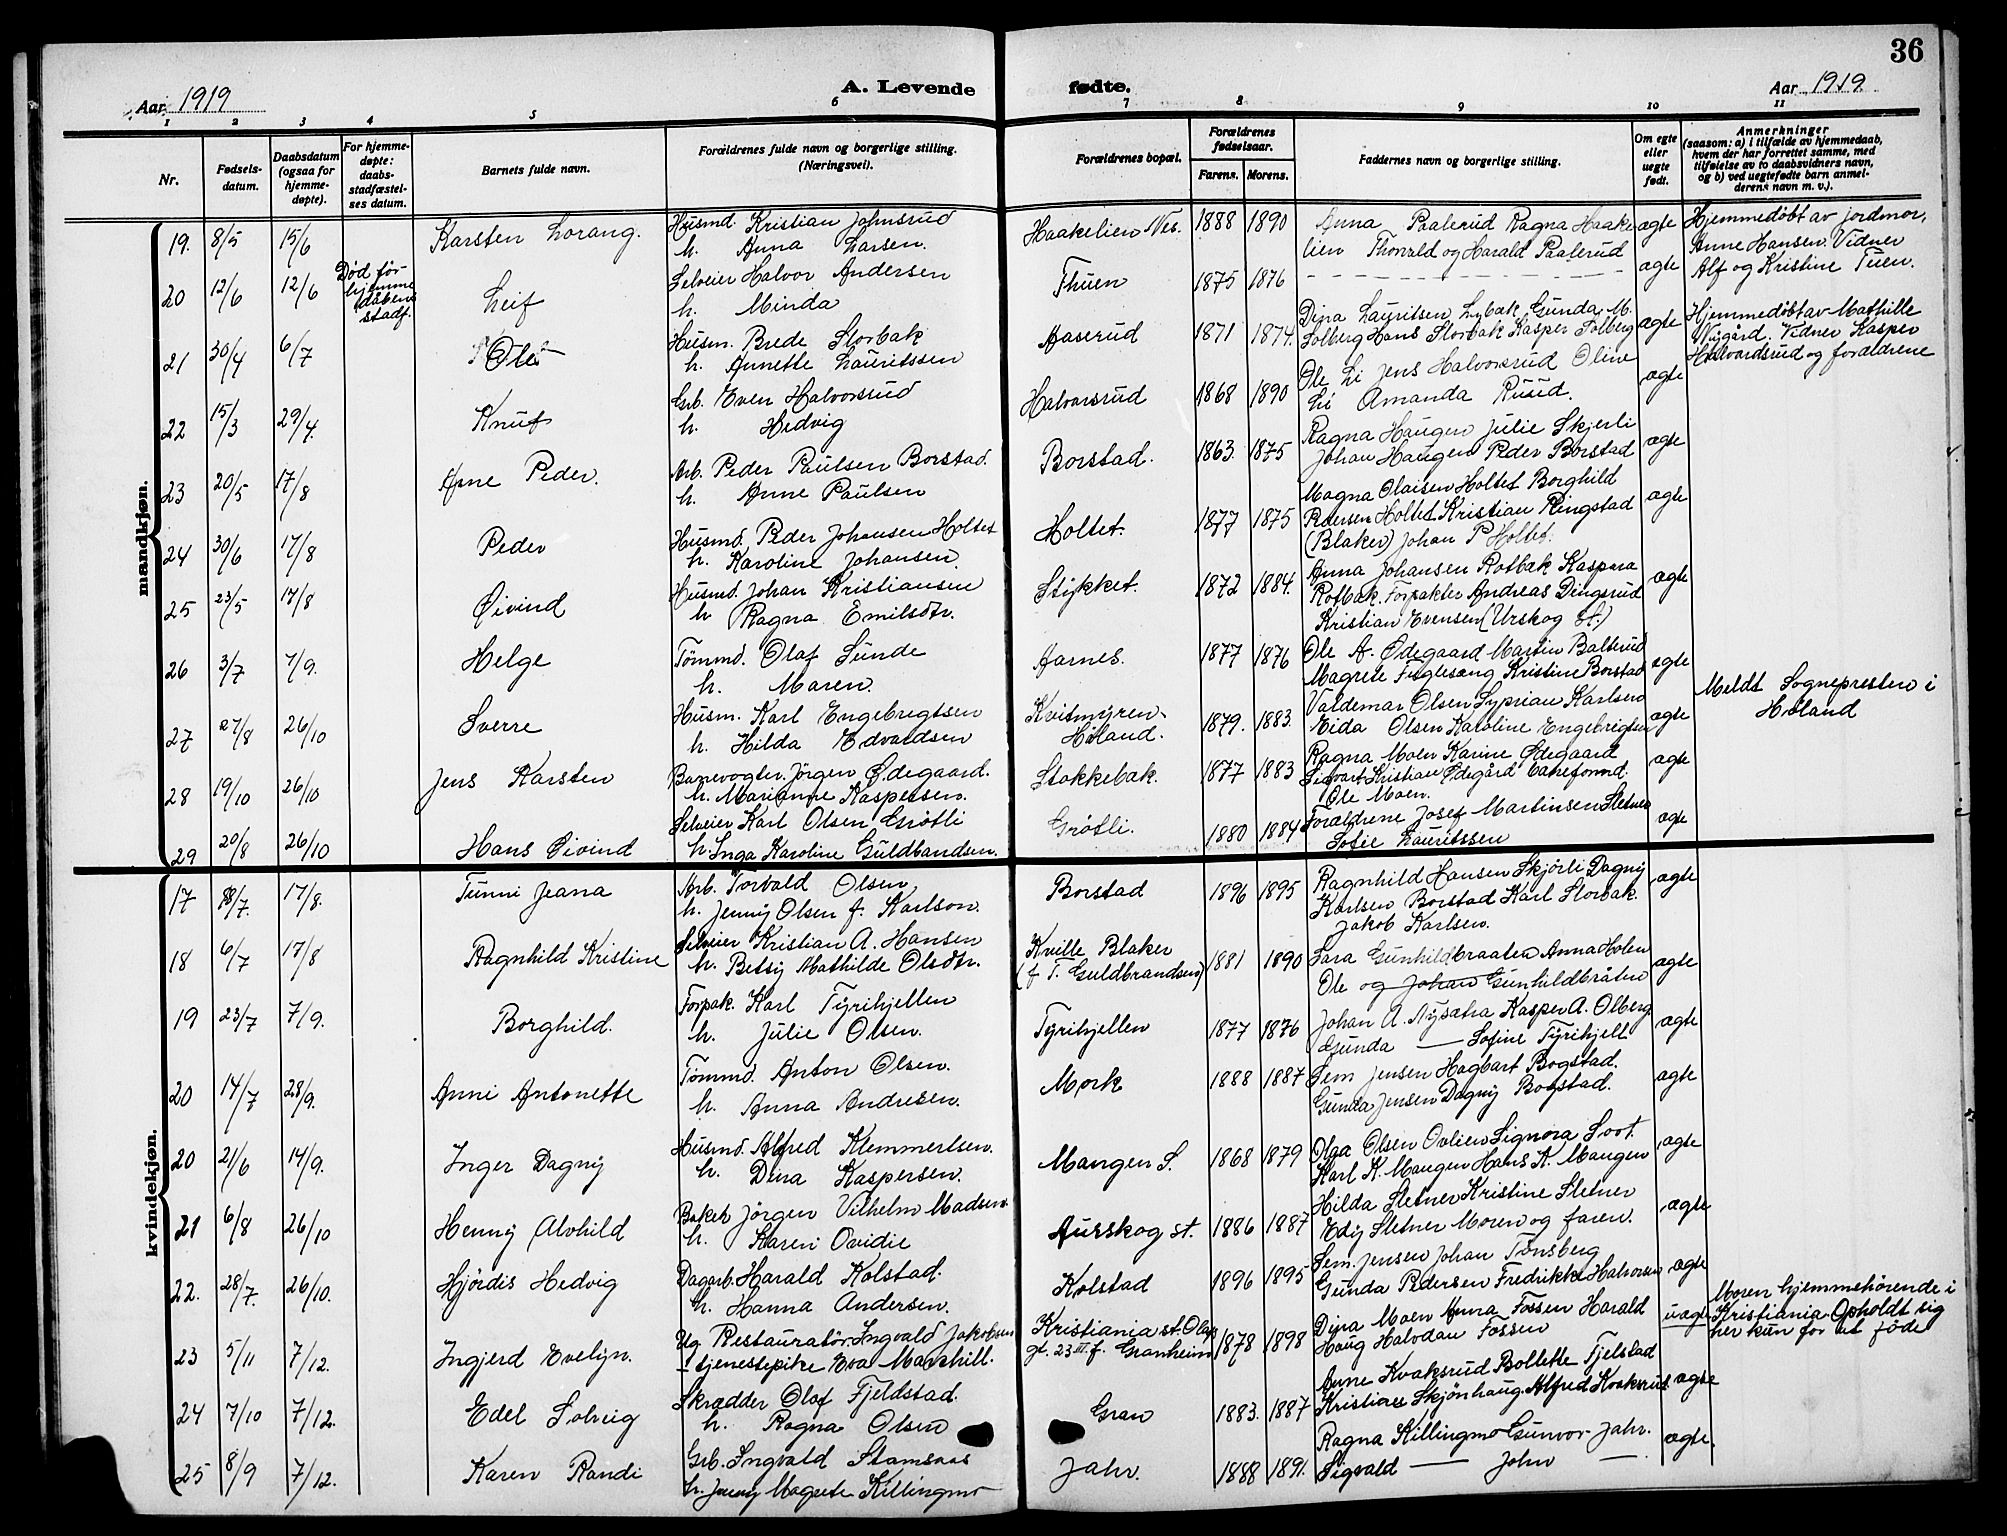 36
Aar 1919
A. Levende fødte.
Aar 1919.
1 2 3 4 5 6 7 8 9 10 11
Nr.
Fødsels-
datum.
Daabsdatum
(ogsaa for
hjemme-
døpte).
For hjemme-
døpte:
daabs-
stadfæstel-
ses datum.
Barnets fulde navn.
Forældrenes fulde navn og borgerlige stilling.
(Næringsvei).
Forældrenes bopæl.
Forældrenes
fødselsaar.
Farens. Morens.
Faddernes navn og borgerlige stilling.
Om egte
eller
uegte
født.
Anmerkninger
(saasom: a) i tilfælde av hjemmedaab,
hvem der har forrettet samme, med
tilføielse av to daabsvidners navn,
og b) ved uegtefødte barn anmel-
derens navn m. v.).
mandkjøn.
19. 8/5 15/6 Karsten Lorang. Husmd. Kristian Johnsrud Haakelien Nes. 1888 1890 Anna Paalerud Ragna Haake- ægte Hjemmedøbt av jordmor,
h. Anna Larsen. lien Thorvald og Harald Paalerud Anne Hansen. Vidner
Alf og Kristine Tuen.
20 12/6 12/6 Død før
hjemme
dåbens
stadf. Leif Selveier Halvor Andersen Thuen 1875 1876 ægte
h. Minda
21 30/4 6/7 Ole Husm. Brede Storbak Aaserud 1871 1874. Dina Lauritsen Lybak Gunda M. ægte Hjemmedøbt av Mathilde
h. Annette Lauritssen Solberg Hans Storbak Kasper Solberg Nygård. Vidner Kasper
Halvardsrud og forældrene
22 15/3 29/4. Knut Grb. Even Halvorsrud Halvorsrud 1868 1890 Ole Li Jens Halvorsrud Oline ægte
h. Hedvig Li Amanda Ruud.
23 20/5 17/8 Arne Peder. Arb. Peder Paulsen Borstad. Borstad. 1863. 1875 Ragna Haugen Julie Skjerli ægte
h. Anne Paulsen Johan Haugen Peder Borstad
24 30/6 17/8 Peder Husmd. Peder Johansen Holtet Holtet. 1877 1875 Magna Olaisen Holtet Borghild ægte
h. Karoline Johansen. Pedersen Holtet Kristian Ringstad
(Blaker) Johan P Holtet.
25 23/5 17/8 Øivind Husmd. Johan Kristiansen Stykket. 1872 1884. Anna Johansen Rotbak Kaspara ægte
h Ragna Emilsdtr. Rotbak. Forpakter Andreas Dingsrud
Kristian Evensen (Urskog st.)
26 3/7 7/9. Helge Tømmd. Olaf Sunde Aarnes. 1877 1876 Ole A. Ødegaard Martin Balterud ægte
h. Maren. Magrete Fuglesang Kristine Borstad
27 27/8 26/10 Sverre Husm. Karl Engebregtsen Kvitmyren 1879. 1883. Valdemar Olsen Syprian Karlsen ægte Meldt Sognepresten i
h. Hilda Edvardsen Høland. Eida Olsen Karoline Engebrigtsen Høland
28 19/10 26/10 Jens Karsten Banevogter. Jørgen Ødegaard. Stokkebak. 1877 1883 Ragna Moen Karine Ødegaard ægte
h. Marianne Kaspersen. Sigvart Kristian Ødegård baneformd.
Ole Moen.
29 20/8 26/10 Hans Øivind Selveier Karl Olsen Grøtli Grøtli. 1880 1884 Forældrene Josef Martinsen Sletner ægte
h. Inga Karoline Guldbandsen. Sofie Lauritssen
kvindekjøn.
17 18/7. 17/8. Tunni Jeana Arb. Torvald Olsen Borstad 1896 1895 Ragnhild Hansen Skjørli Dagny ægte
h. Jenny Olsen f. Karlson. Karlsen Borstad Karl Storbak.
Jakob Karlsen.
18 6/7 17/8 Ragnhild Kristine Selveier Kristian A. Hansen Kville Blaker 1881 1890 Sara Gunhildbraaten Anna Holen ægte
h. Betsy Mathilde Olsdtr. (f T. Guldbrandsen) Ole og Johan Gunhildbråten
19 23/7 7/9. Borghild. Forpak. Karl Tyrihjellen Tyrihjellen 1877 1876 Johan A. Nysætra Kasper A. Olberg ægte
h. Julie Olsen. Gunda — Sofine Tyrihjell
20 14/7 28/9. Anni Antonette Tømmd. Anton Olsen. Mork 1888 1887 Sem Jensen Hagbart Bogstad. ægte
h. Anna Andresen. Gunda Jensen Dagny Bogstad.
20 21/6 14/9. Inger Dagny Husmd. Alfred Klemmertsen. Mangen S. 1868 1879 Olga Olsen Ovlien Signora Soot. ægte
h. Dina Kaspersen. Karl K. Mangen Hans K. Mangen
21 6/8 26/10 Henny Alvhild Baker Jørgen Vilhelm Madsen. Aurskog st. 1886 1887 Hilda Sletner Kristine Sletner ægte
h. Karen Ovidie Edy Sletner Moren og faren.
22. 28/7. 26/10. Hjørdis Hedvig Dagarb. Harald Kolstad. Kolstad 1896 1895 Sem Jensen Johan Tønsberg ægte
h. Hanna Andersen. Gunda Pedersen Fredrikke Halvorsen
23 5/11 7/12. Ingjerd Evelyn. Ug. Restauratør. Ingvald Jakobsen Kristiania st. Olafs 1878 1898 Dina Moen Anna Fossen Harald uægte Moren hjemmehørende i
— tjenestepike Eva Marshill. gt. 23 III f. Granheim Haug Halvdan Fossen Kristiania. Opholdt sig
her kun for at føde
24 7/10 7/12. Edel Solveig Skrædder Olaf Fjeldstad. Gran 1883. 1887 Anne Kvaksrud Bollette Fjelstad ægte
h. Ragna Olsen Kristian Skjønhaug. Alfred Kvaksrud.
25 8/9 7/12. Karen Randi Grb. Ingvald Stamsaas Jahr. 1888 1891. Ragna Killingmo Gunvor Jahr. ægte.
h. Jenny Magrete Killingmo Sigvald — John —